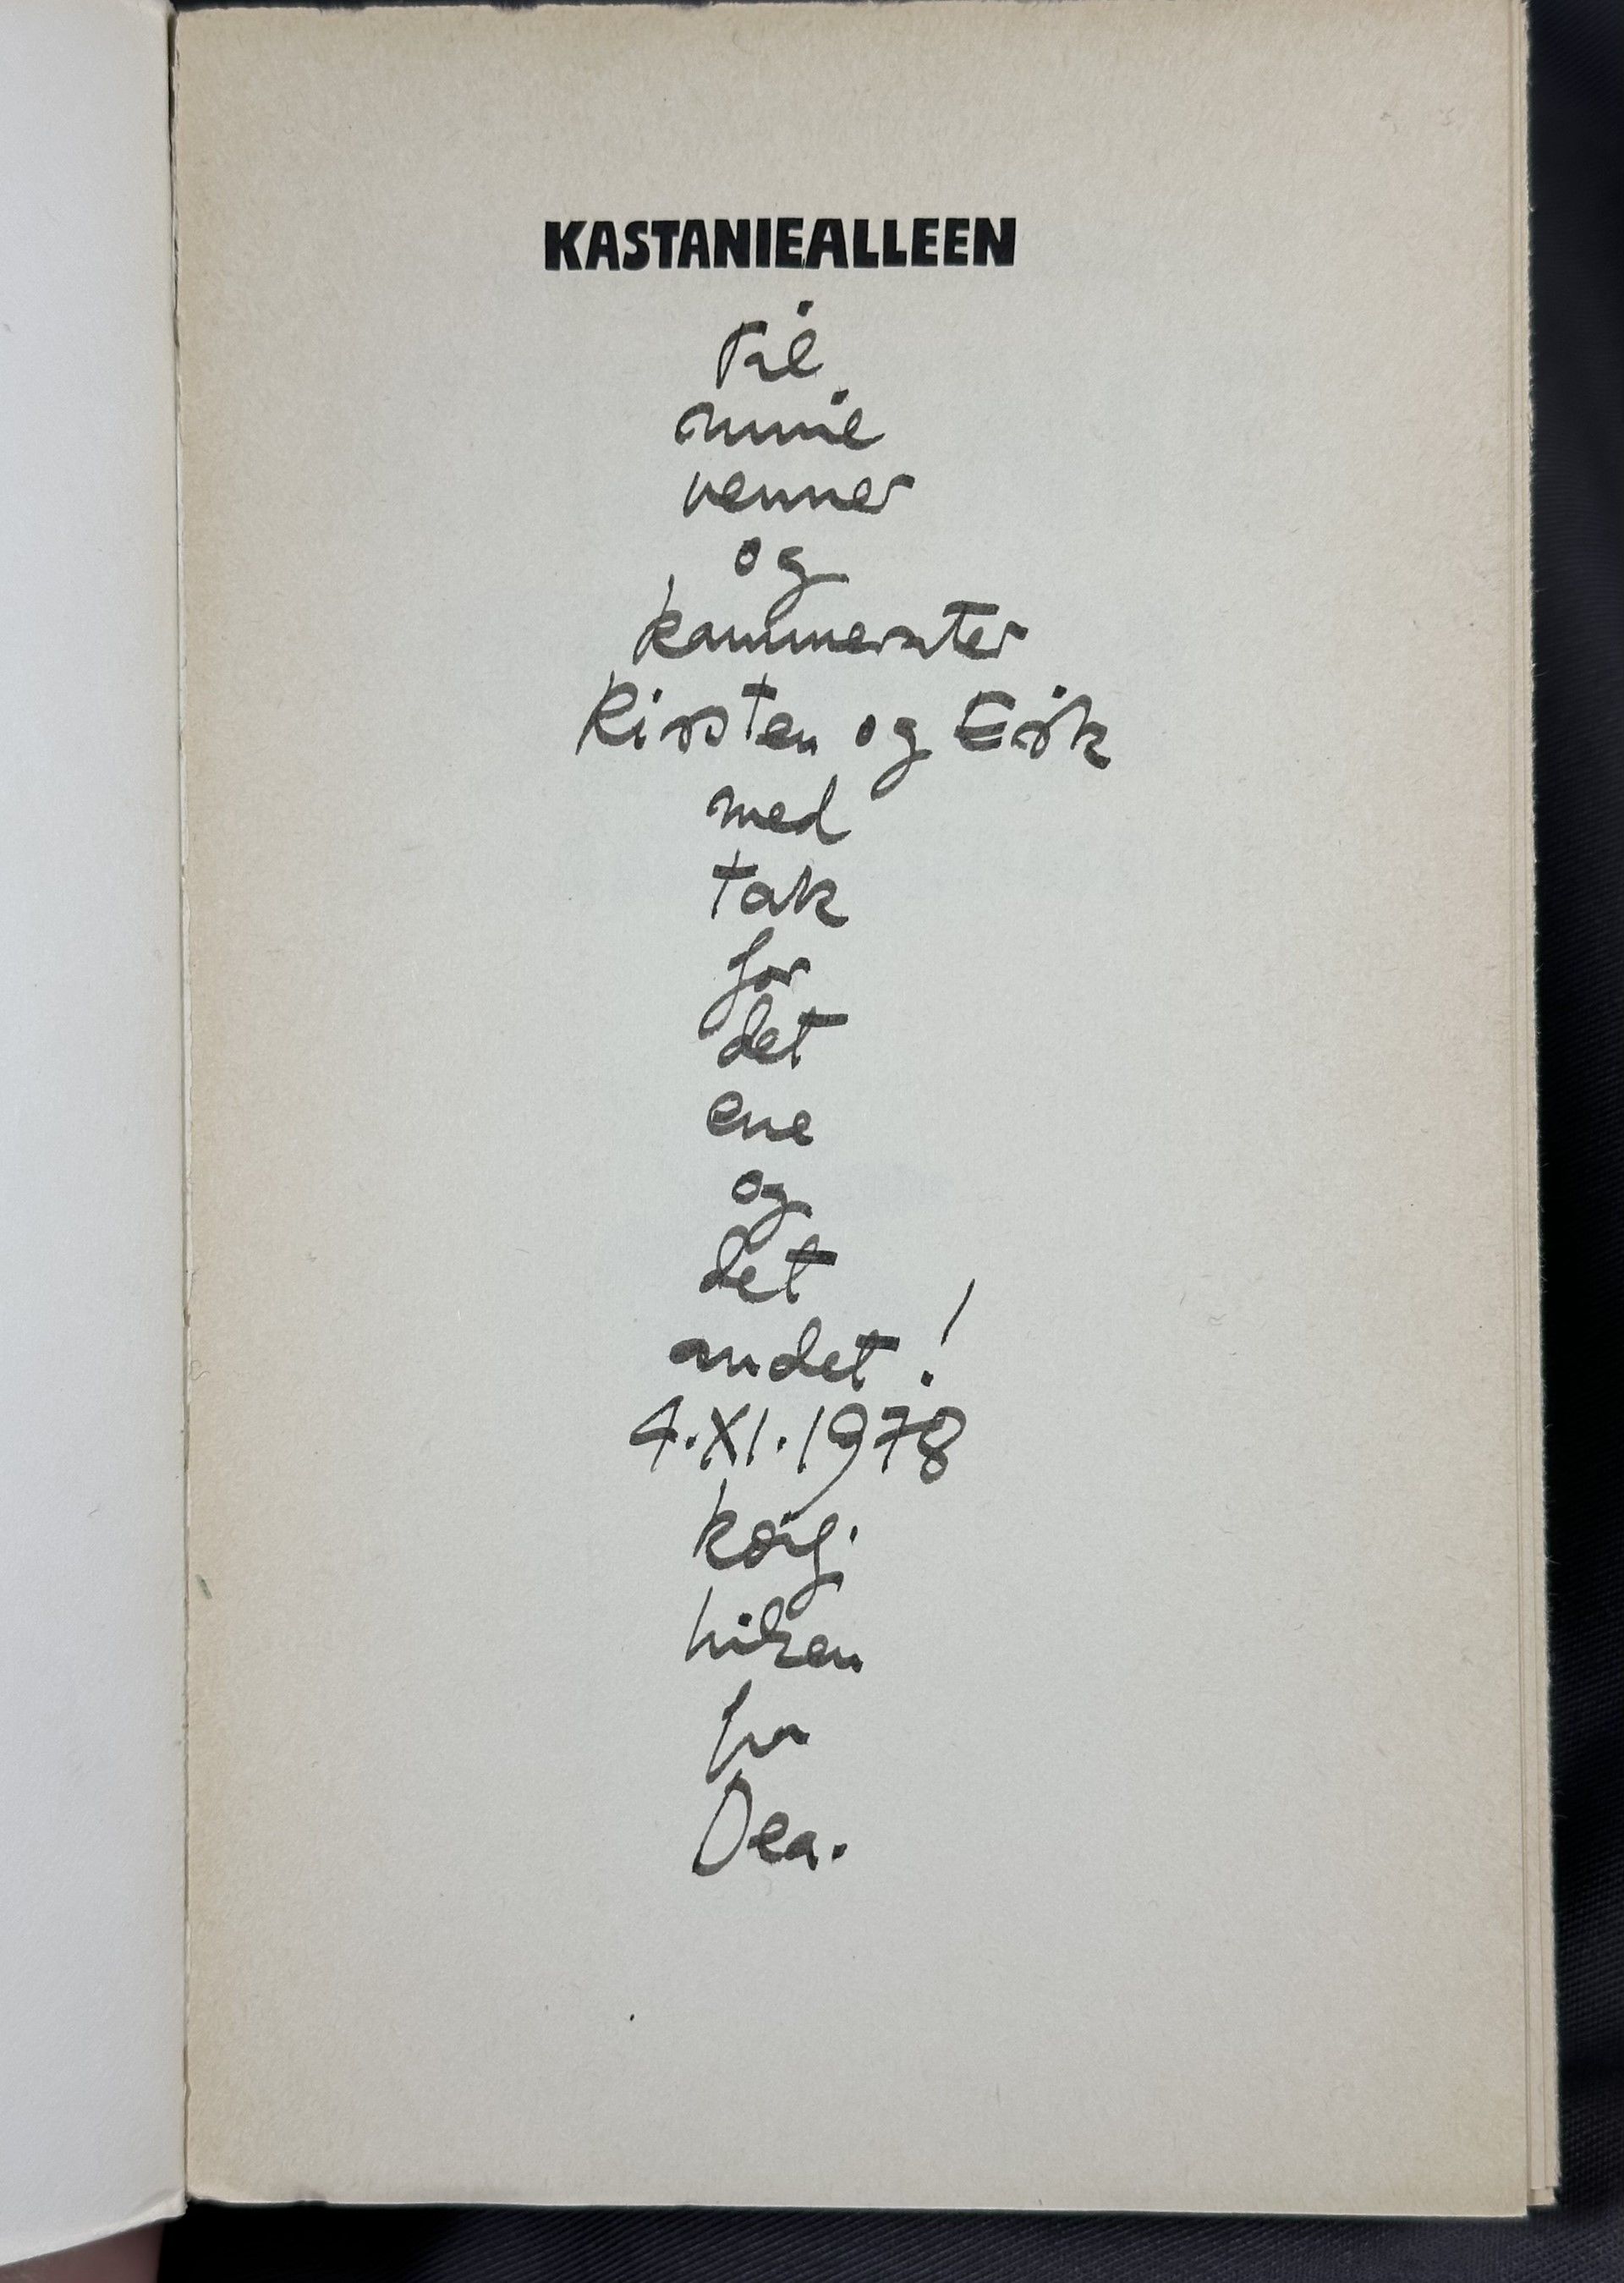 KASTANIEALLEEN
Til
mine
venner
og
kammerater
Kirsten og Erik
med
tak
for
det
ene
og
det
andet!
4.XI.1978
kærl.
hilsen
fra
Dea.